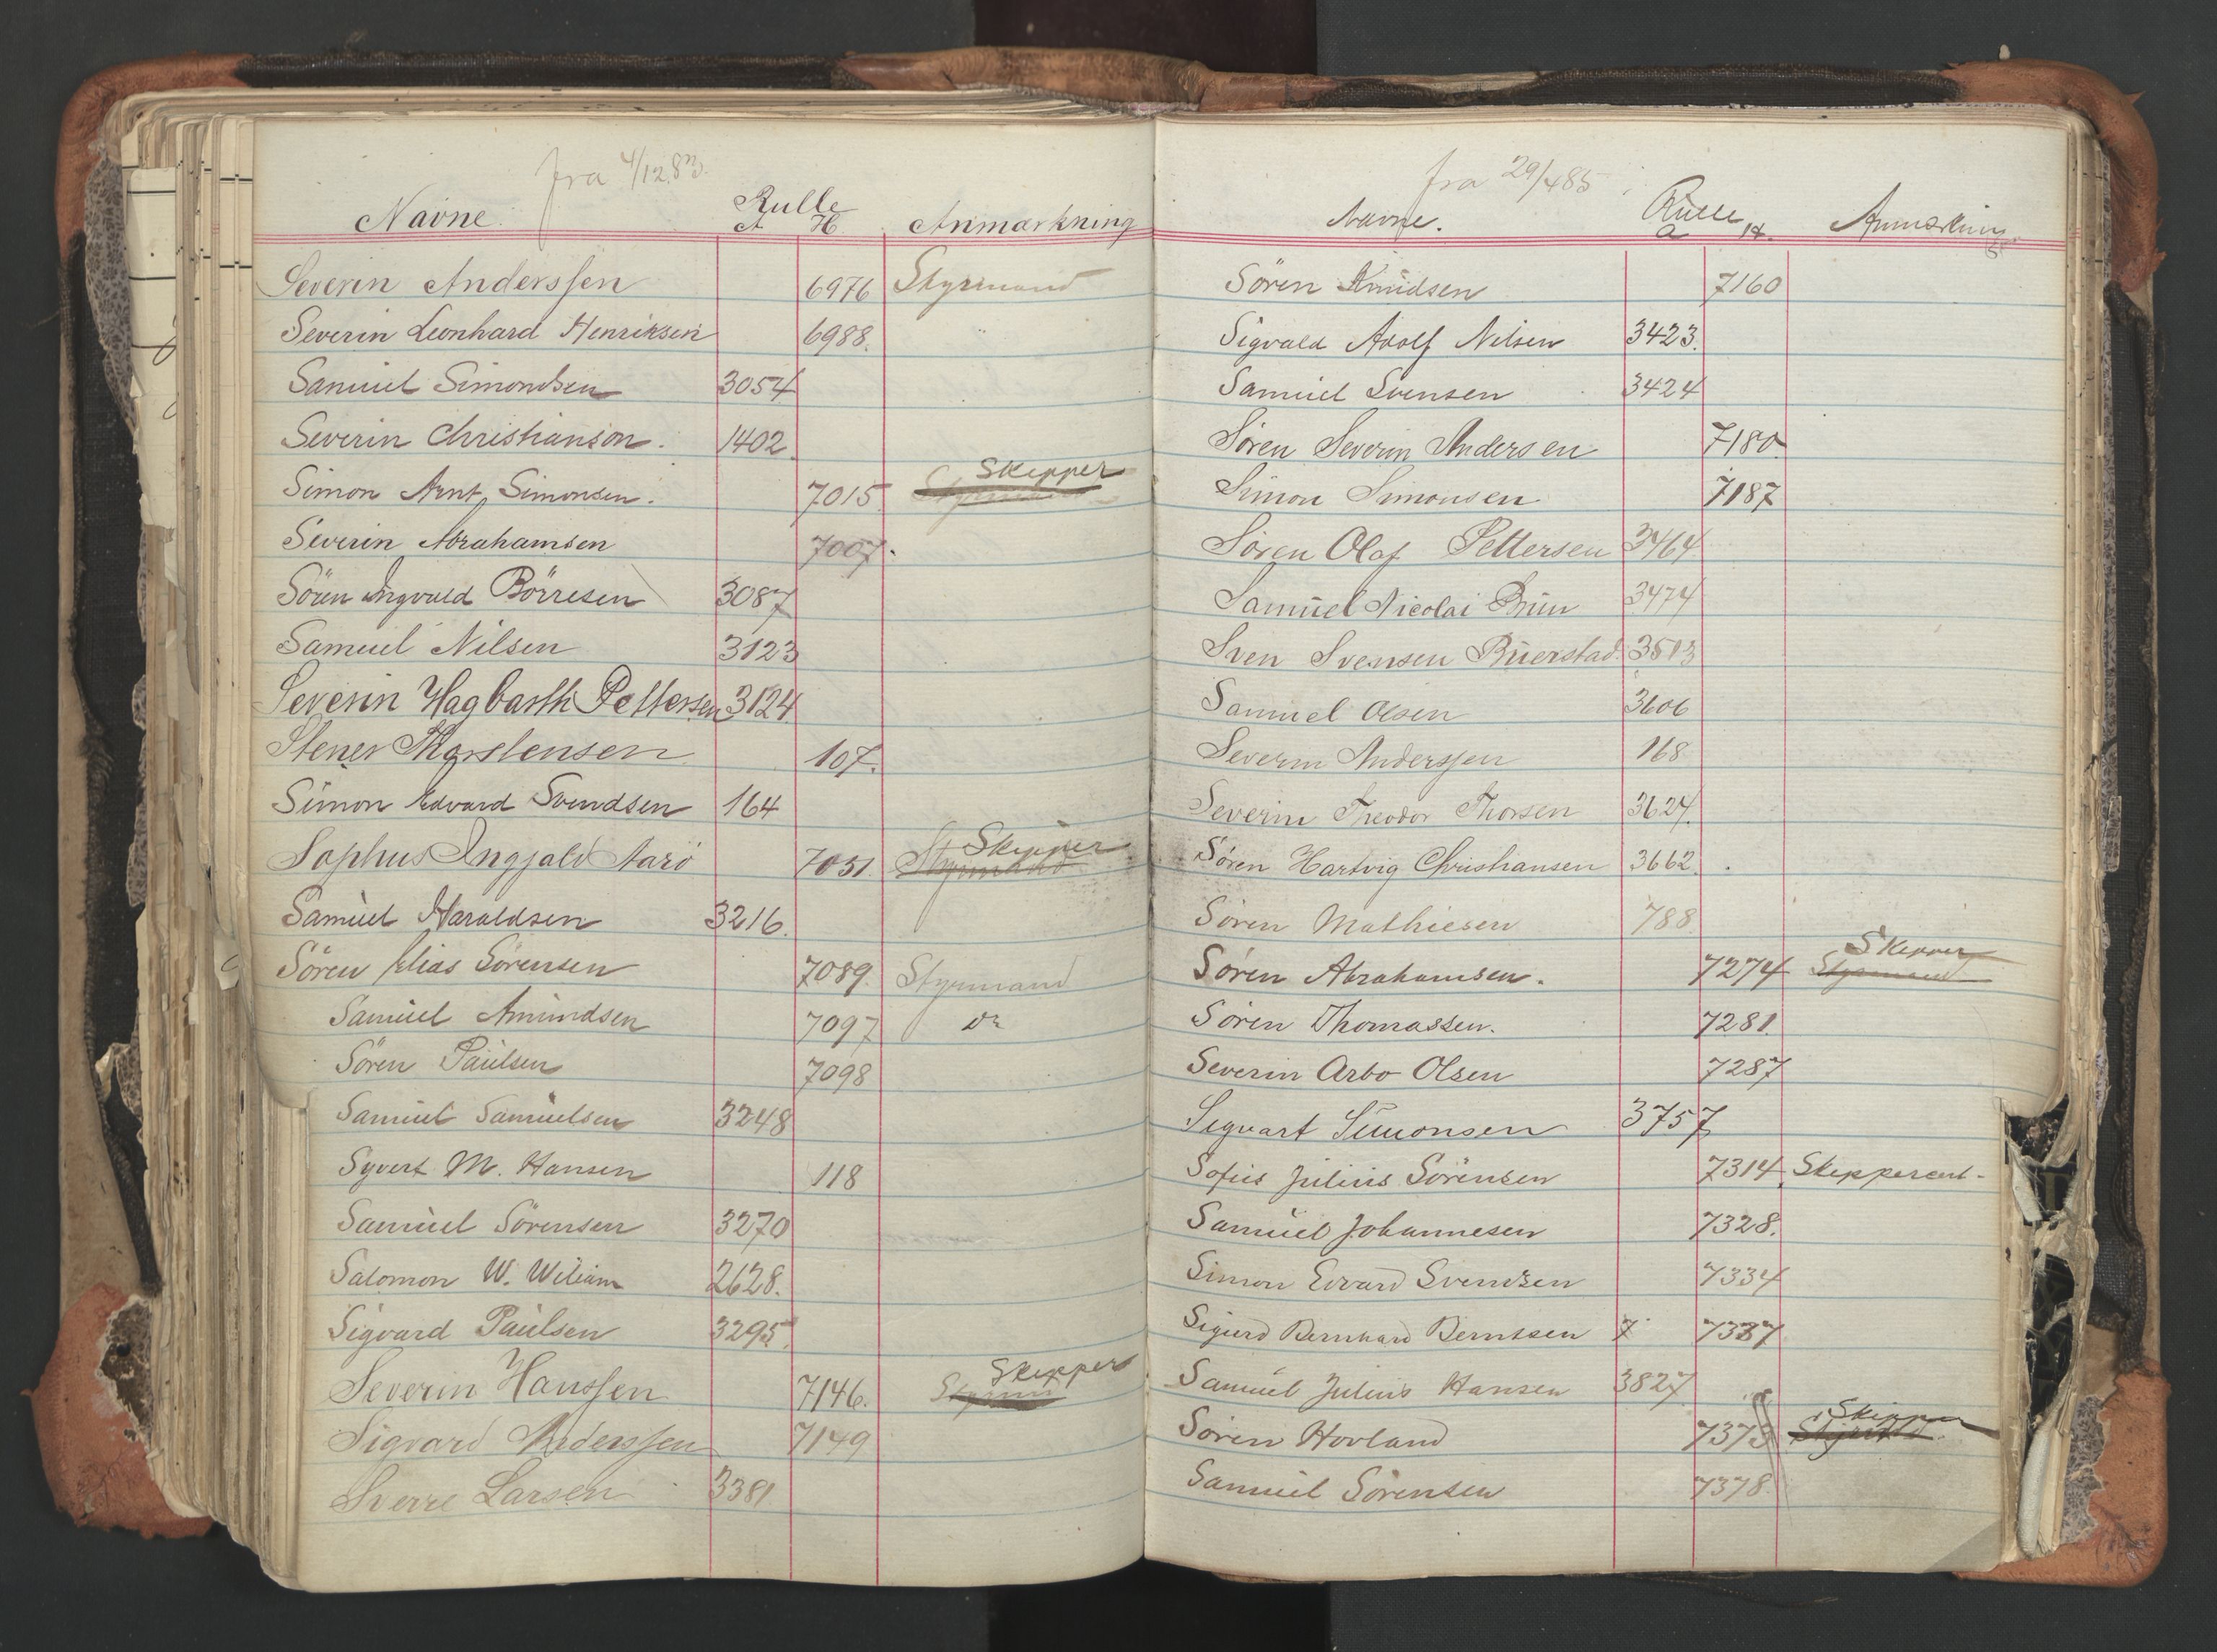 fra 4/12 83.
Navne. Rulle
A H. Anmarkning
Severin Anderssen 6976 Styrmand
Severin Leonhard Henriksen 6988. "
Samuel Simondsen 3054
Severin Christianson. 1402.
Simon Arnt Simonsen. 7015. Styrmand Skipper
Severin Abrahamsen 7007.
Sören Ingvald Börresen 3087
Samuel Nilsen 3123
Severin Hagbarth Pettersen 3124
Stener Thorstensen 107.
Simon Edvard Svendsen 164
Sophus Ingjald Aarö 7051. Styrmand Skipper
Samuel Haraldsen 3216.
Sören Elias Sörensen 7089. Styrmand
Samuel Amundsen 7097 Do
Sören Paulsen 7098
Samuel Samuelsen 3248
Syvert M. Hansen 118
Samuel Sörensen 3270
Salomon W. Wiliam 2628.
Sigvard Paulsen 3295.
Severin Hanssen 7146. Skipper
Sigvard Anderssen 7149
Sverre Larsen 3381
fra 29/4 85
Navne. Rulle
a H. Anmerkning
Sören Knudsen 7160
Sigvald Adolf Nilsen 3423.
Samuel Svensen 3424
Sören Severin Andersen 7180.
Simon Simonsen 7187
Sören Olaf Pettersen 3464
Samuel Nicolai Brun 3474
Sven Svensen Buerstad. 3513
Samuel Olsen 3606
Severin Anderssen 168
Severin Theodor Thorsen 3624.
Sören Hartvig Christiansen 3662.
Sören Mathiesen 788.
Sören Abrahamsen. 7274 Styrmand Skipper
Sören Thomassen. 7281.
Severin Arbo Olsen 7287
Sigvart Simonsen 3757
Sofus Julius Sörensen 7314 Skippercert-
Samuel Johannesen 7328.
Simon Edvard Svendsen 7334
Sigurd Bernhard Berntsen 7 7337
Samuel Julius Hansen 3827
Sören Hovland 7373 Skipper
Samuel Sörensen 7378.